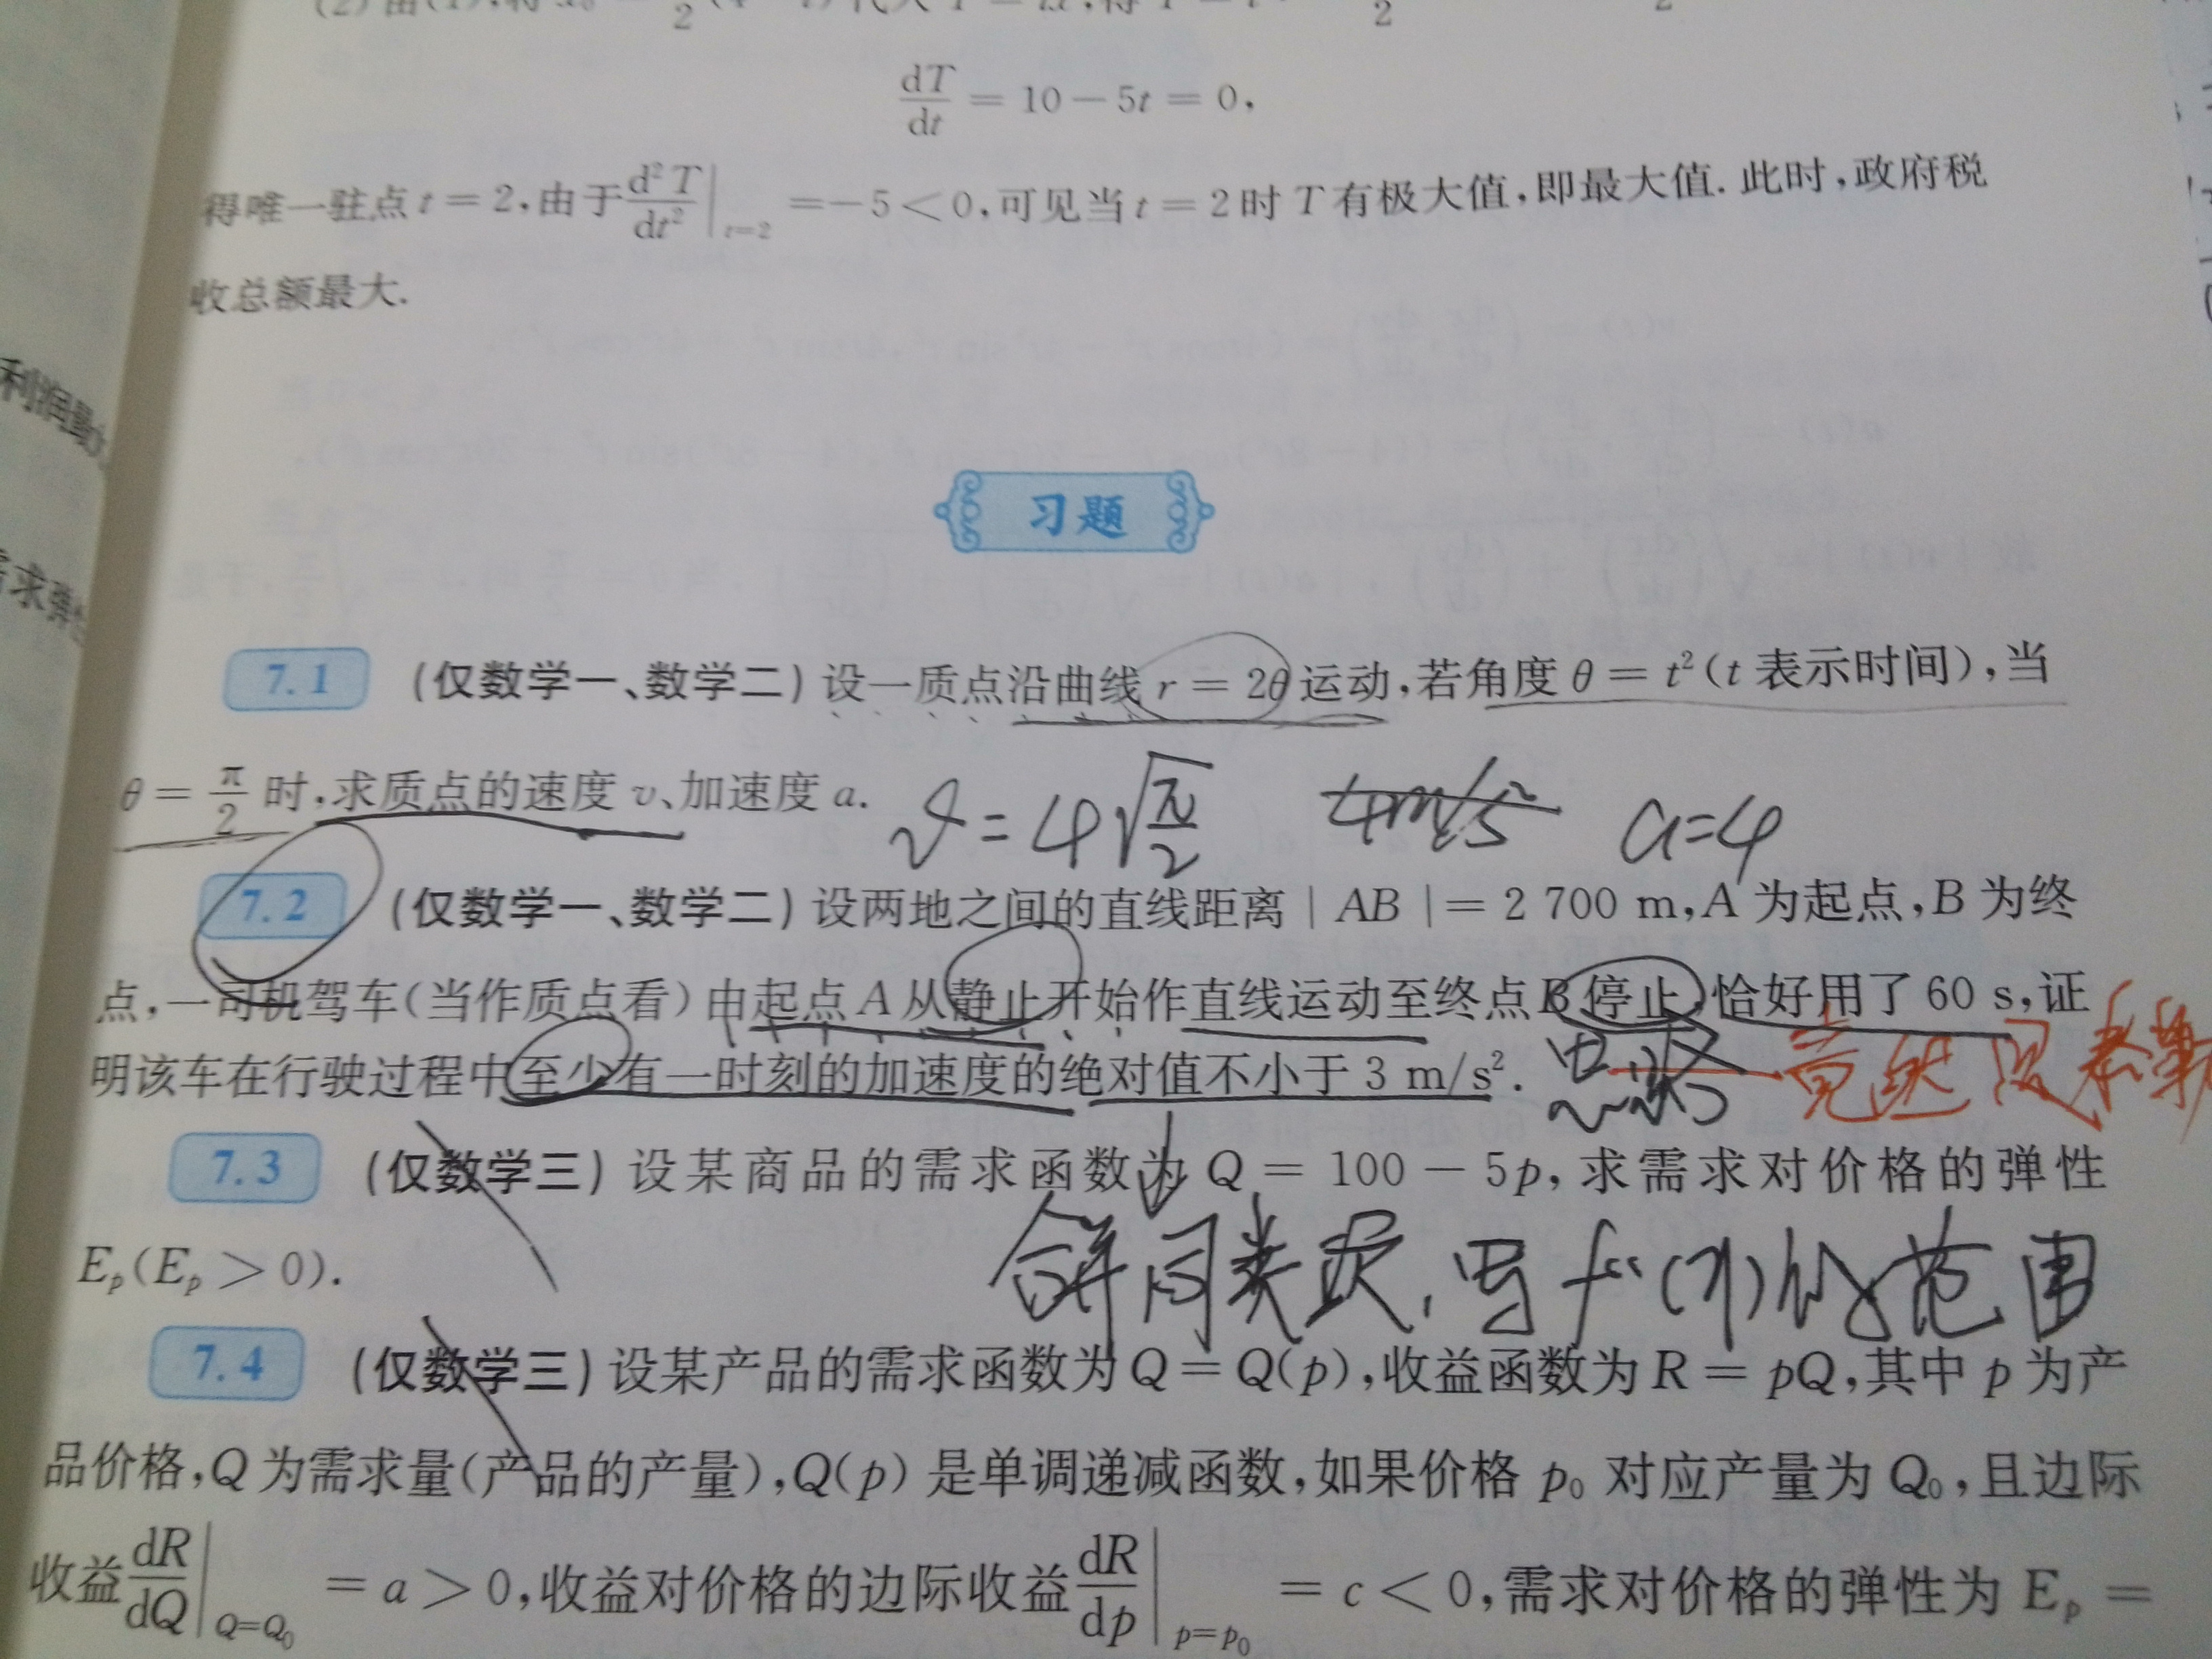 dT/dt = 10 − 5t = 0,
得唯一驻点 t = 2,由于 d²T/dt² |t=2 = −5 < 0,可见当 t = 2 时 T 有极大值,即最大值. 此时,政府税
收总额最大.
利润最大
需求弹性
习题
7.1 (仅数学一、数学二) 设一质点沿曲线 r = 2θ 运动,若角度 θ = t² (t 表示时间),当
θ = π/2 时,求质点的速度 v、加速度 a. v = 4√(π/2) 4m/s² a=4
7.2 (仅数学一、数学二) 设两地之间的直线距离 | AB | = 2 700 m, A 为起点, B 为终
点,一司机驾车(当作质点看)由起点 A 从静止开始作直线运动至终点 B 停止,恰好用了 60 s,证
明该车在行驶过程中至少有一时刻的加速度的绝对值不小于 3 m/s². 竟然没泰勒
7.3 (仅数学三) 设某商品的需求函数为 Q = 100 − 5p, 求需求对价格的弹性
Ep(Ep > 0).
合并同类项,写f''(x)的范围
7.4 (仅数学三) 设某产品的需求函数为 Q = Q(p),收益函数为 R = pQ,其中 p 为产
品价格,Q 为需求量(产品的产量),Q(p) 是单调递减函数,如果价格 p₀ 对应产量为 Q₀,且边际
收益 dR/dQ |Q=Q₀ = a > 0,收益对价格的边际收益 dR/dp |p=p₀ = c < 0,需求对价格的弹性为 Ep =